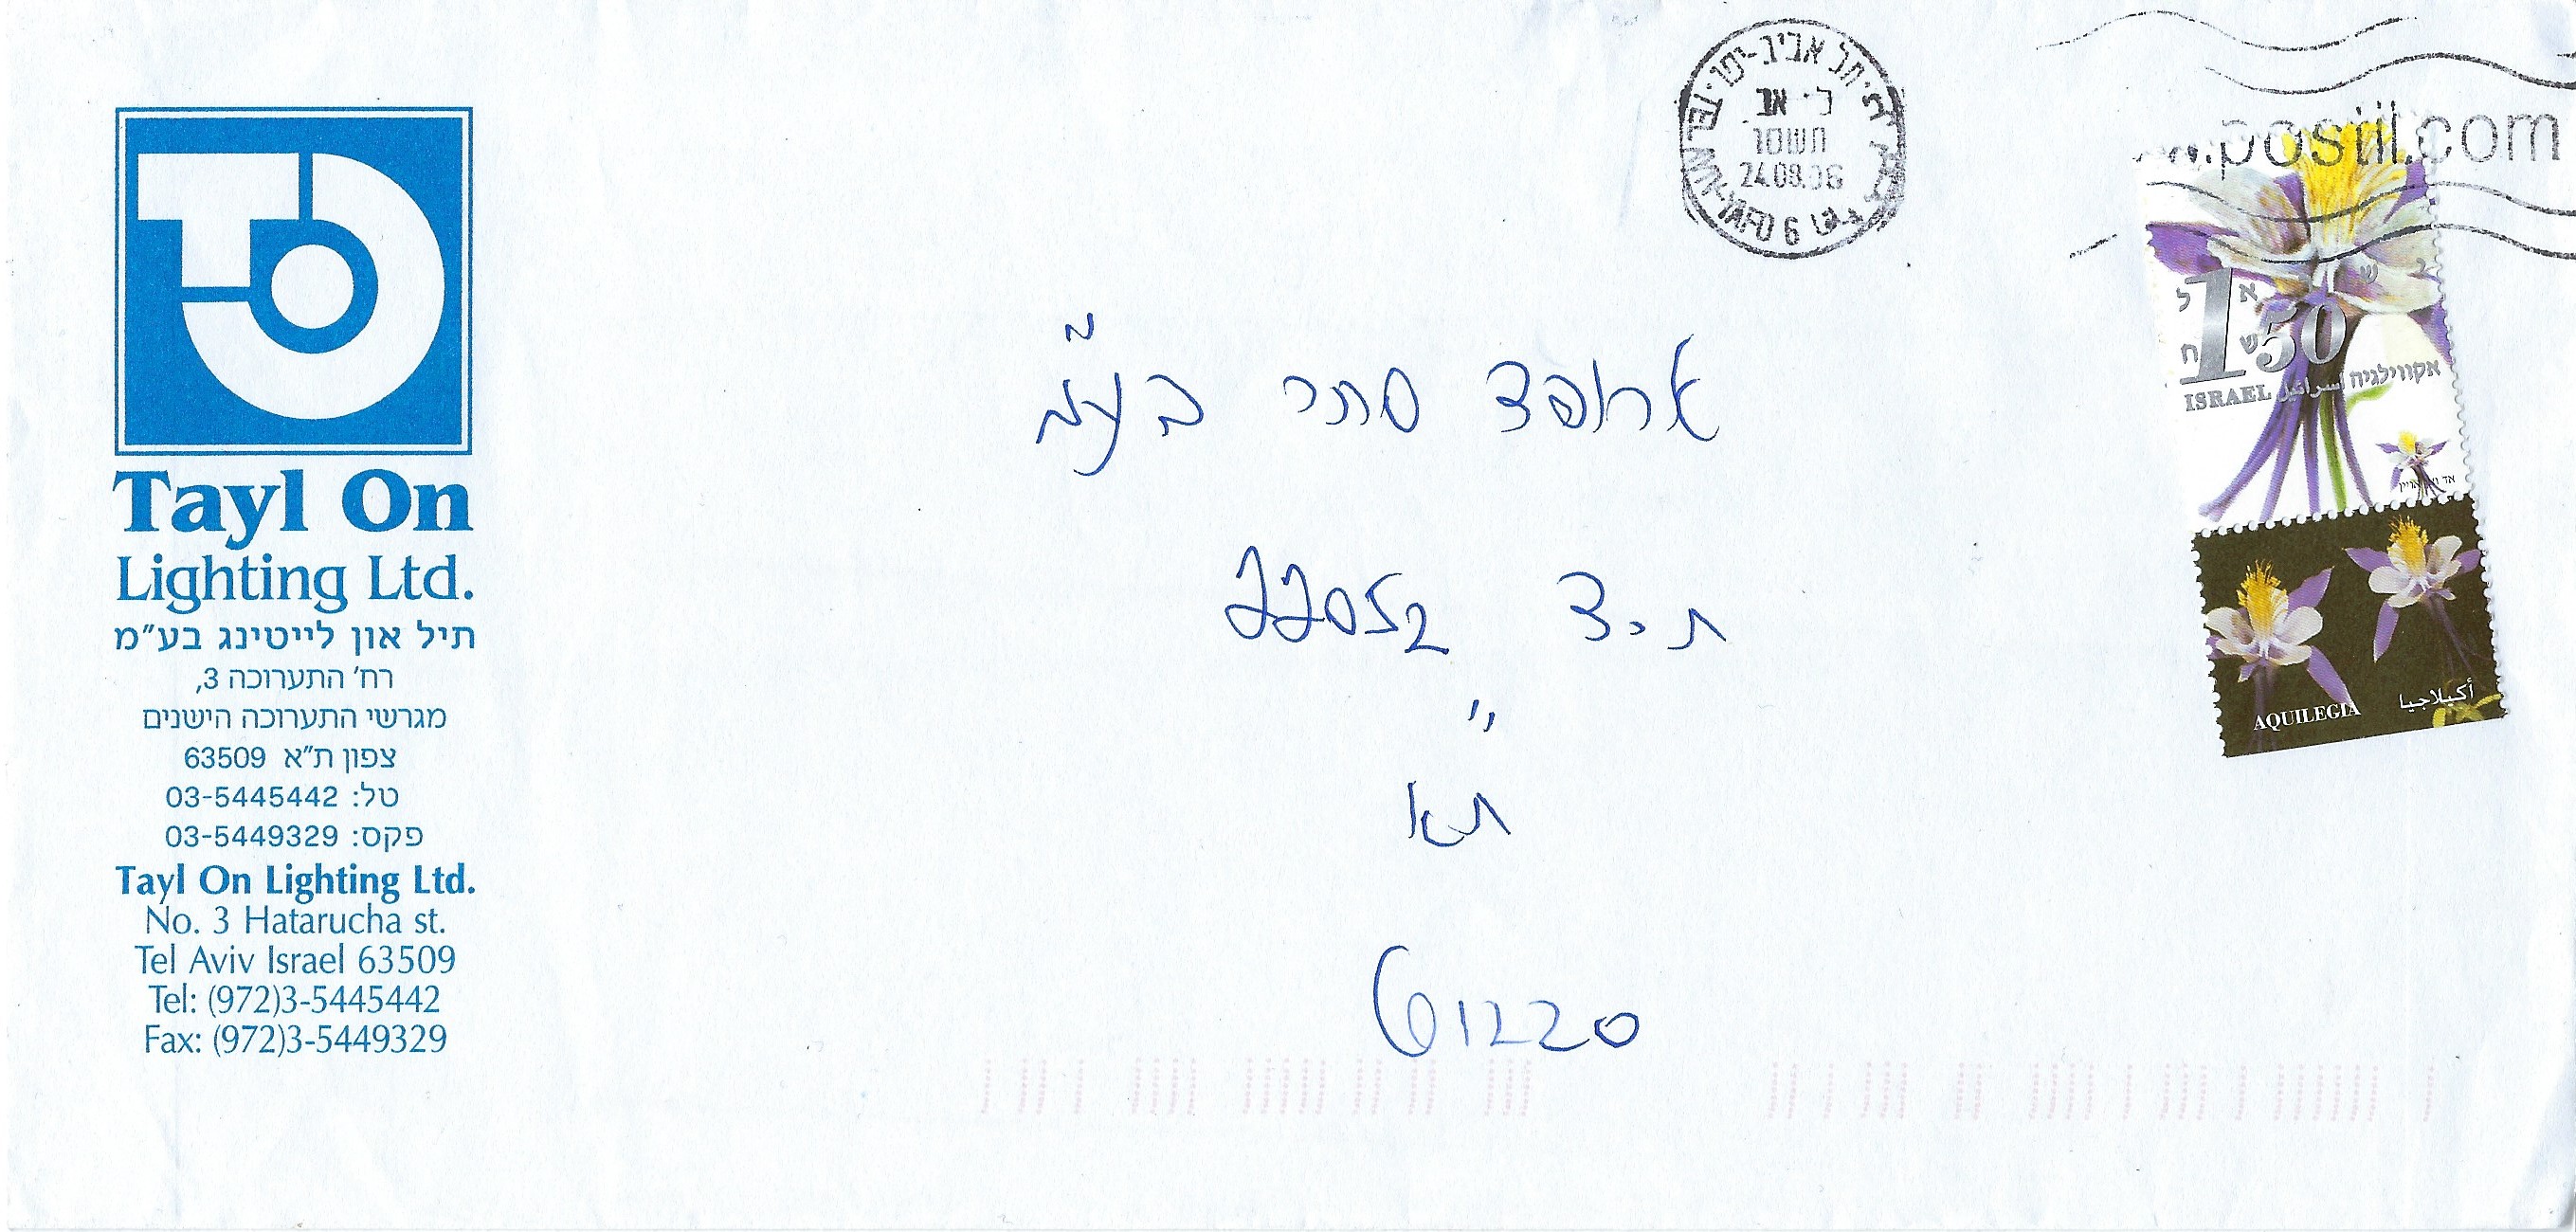 Tayl On
Lighting Ltd.
תיל און לייטינג בע״מ
רח׳ התערוכה 3,
מגרשי התערוכה הישנים
צפון ת״א 63509
טל: 03-5445442
פקס: 03-5449329
Tayl On Lighting Ltd.
No. 3 Hatarucha st.
Tel Aviv Israel 63509
Tel: (972)3-5445442
Fax: (972)3-5449329
תל אביב-יפו
כ׳ אב
תשסו
24.08.06
YAFO 6
.postil.com
ישראל
1.50
ש ח
ISRAEL اسرائيل אקווילגיה
AQUILEGIA أكيلاجيا
ארופד סתר בע״מ
ת.ד 22052
ת״א
61220